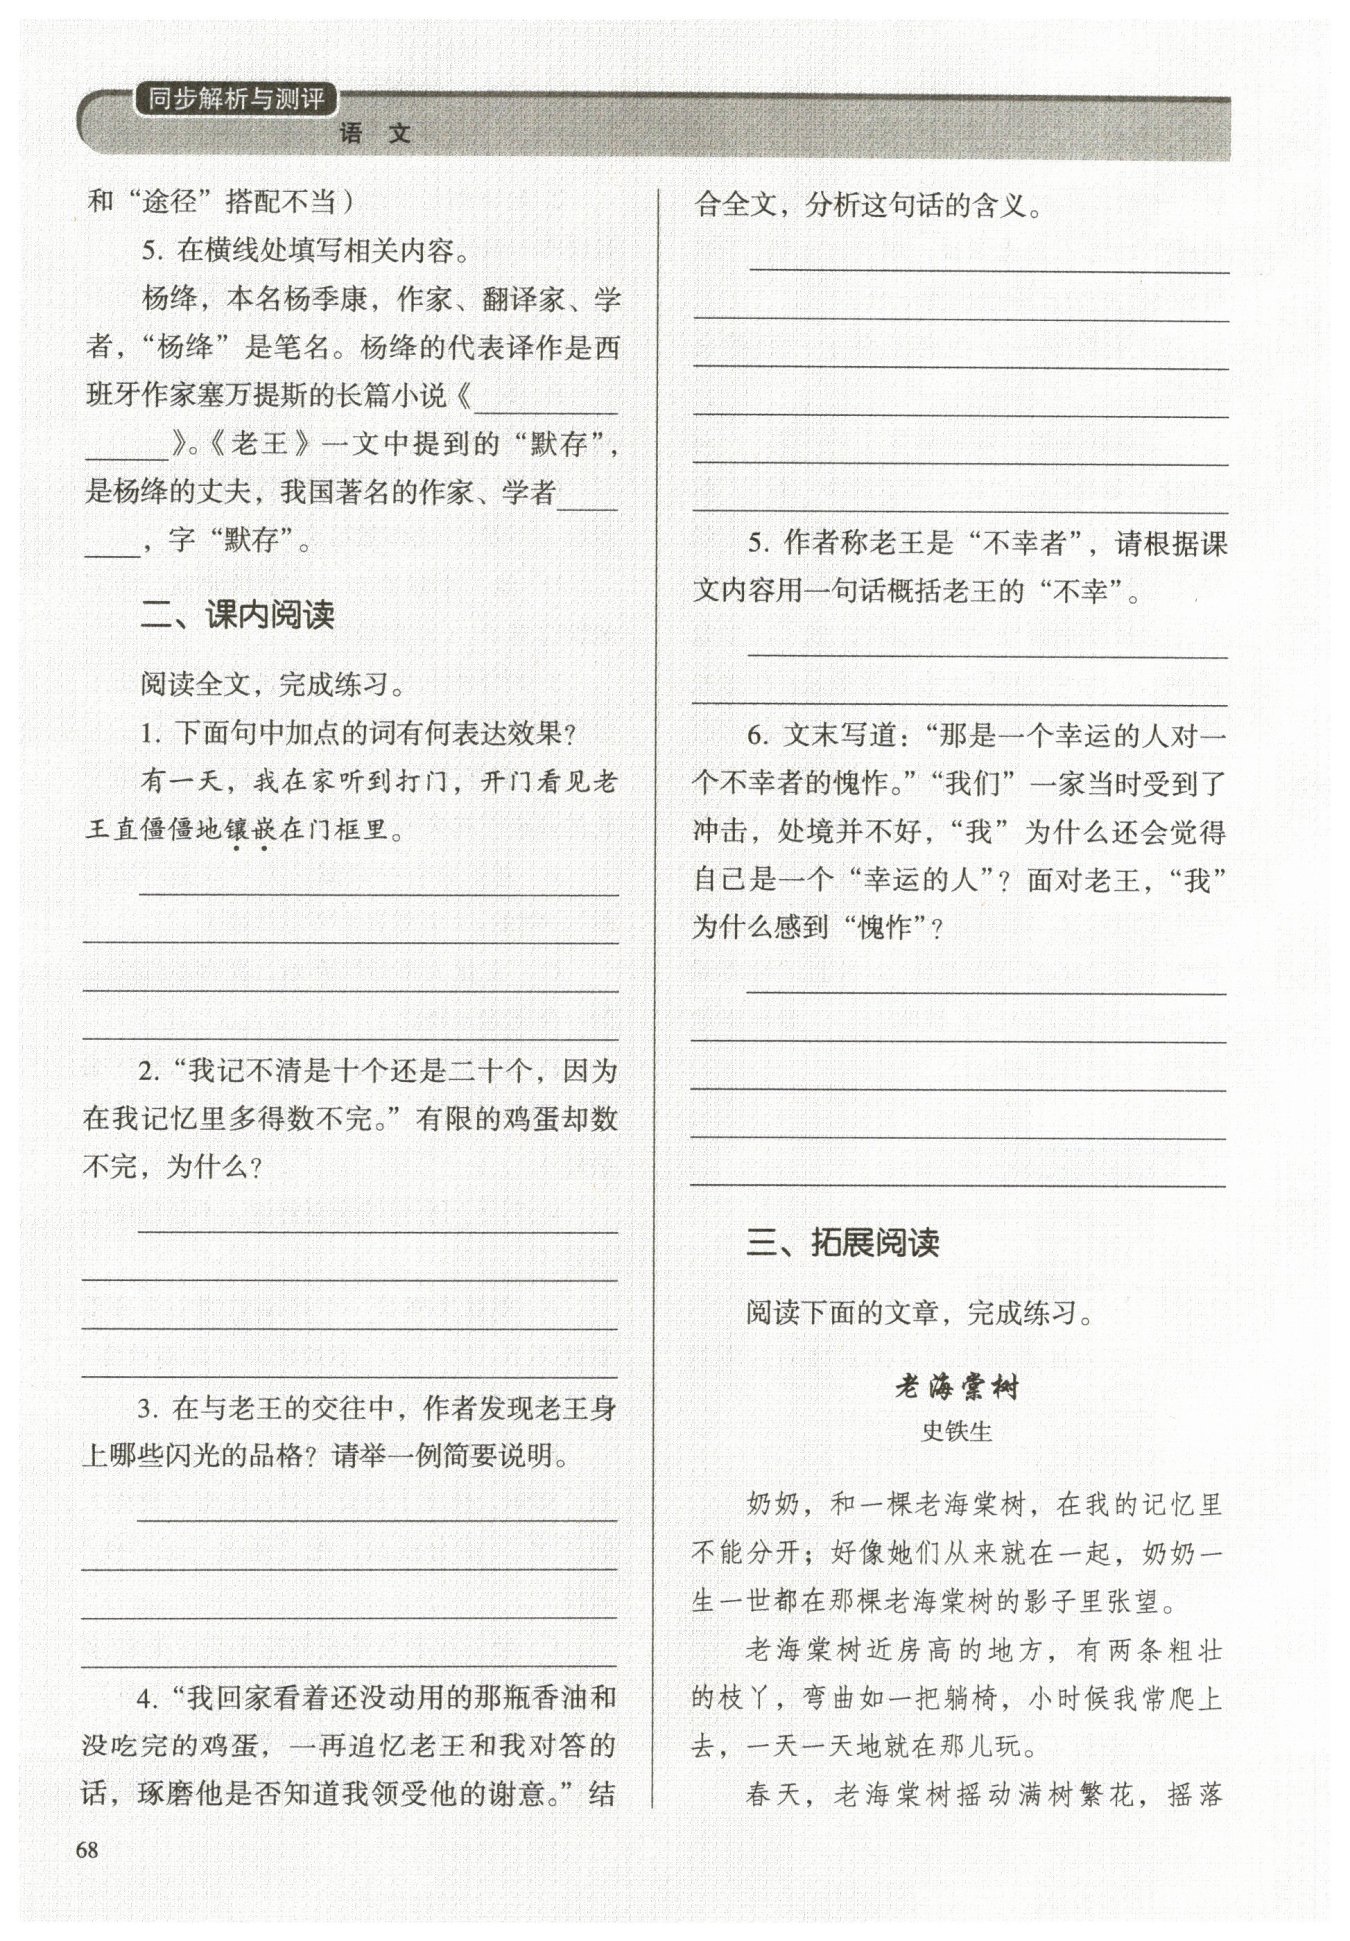 同步解析与测评
语 文
和“途径”搭配不当）
5. 在横线处填写相关内容。
杨绛，本名杨季康，作家、翻译家、学
者，“杨绛”是笔名。杨绛的代表译作是西
班牙作家塞万提斯的长篇小说《
》。《老王》一文中提到的“默存”，
是杨绛的丈夫，我国著名的作家、学者
，字“默存”。
二、课内阅读
阅读全文，完成练习。
1. 下面句中加点的词有何表达效果？
有一天，我在家听到打门，开门看见老
王直僵僵地镶嵌在门框里。
2. “我记不清是十个还是二十个，因为
在我记忆里多得数不完。”有限的鸡蛋却数
不完，为什么？
3. 在与老王的交往中，作者发现老王身
上哪些闪光的品格？请举一例简要说明。
4. “我回家看着还没动用的那瓶香油和
没吃完的鸡蛋，一再追忆老王和我对答的
话，琢磨他是否知道我领受他的谢意。”结
68
合全文，分析这句话的含义。
5. 作者称老王是“不幸者”，请根据课
文内容用一句话概括老王的“不幸”。
6. 文末写道：“那是一个幸运的人对一
个不幸者的愧怍。”“我们”一家当时受到了
冲击，处境并不好，“我”为什么还会觉得
自己是一个“幸运的人”？面对老王，“我”
为什么感到“愧怍”？
三、拓展阅读
阅读下面的文章，完成练习。
老海棠树
史铁生
奶奶，和一棵老海棠树，在我的记忆里
不能分开；好像她们从来就在一起，奶奶一
生一世都在那棵老海棠树的影子里张望。
老海棠树近房高的地方，有两条粗壮
的枝丫，弯曲如一把躺椅，小时候我常爬上
去，一天一天地就在那儿玩。
春天，老海棠树摇动满树繁花，摇落